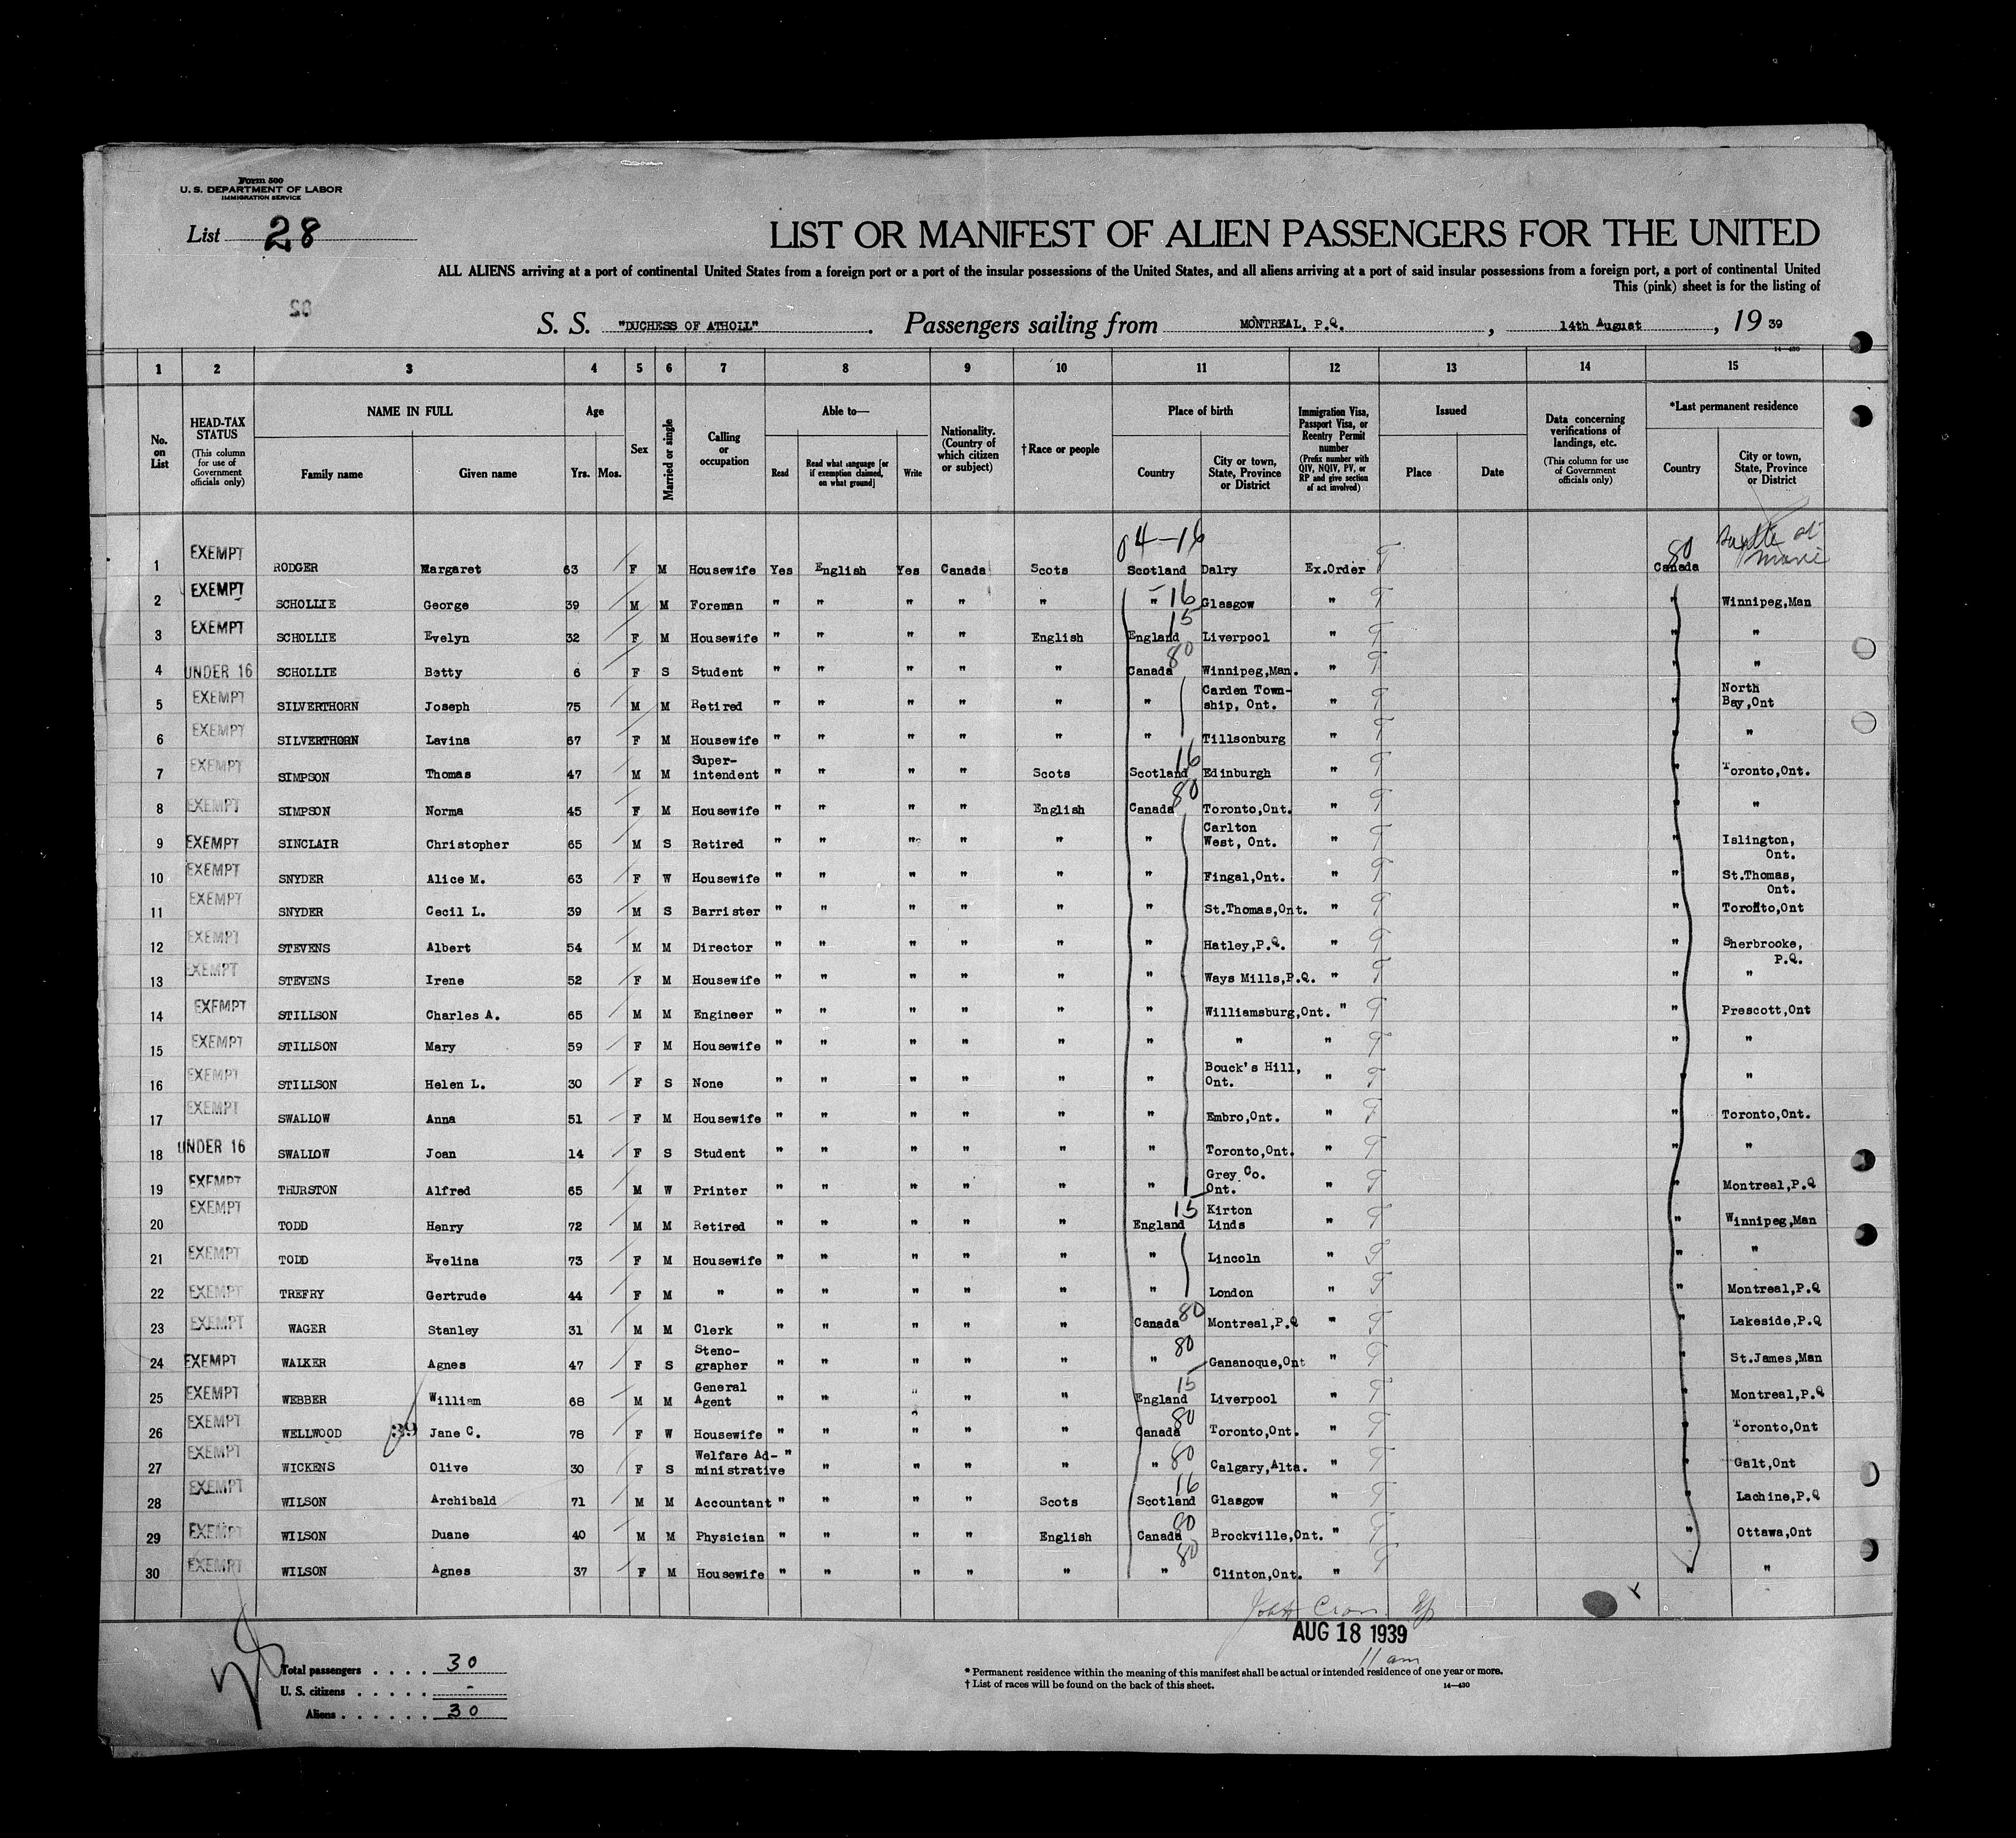 Form 500
U. S. DEPARTMENT OF LABOR
IMMIGRATION SERVICE
List 28
LIST OR MANIFEST OF ALIEN PASSENGERS FOR THE UNITED
ALL ALIENS arriving at a port of continental United States from a foreign port or a port of the insular possessions of the United States, and all aliens arriving at a port of said insular possessions from a foreign port, a port of continental United
This (pink) sheet is for the listing of
S. S. "DUCHESS OF ATHOLL" . Passengers sailing from MONTREAL, P.Q. , 14th August , 19 39
14—430
1 2 3 4 5 6 7 8 9 10 11 12 13 14 15
No. on List
HEAD-TAX STATUS (This column for use of Government officials only)
NAME IN FULL
Family name Given name
Age
Yrs. Mos.
Sex
Married or single
Calling or occupation
Able to—
Read Read what language [or if exemption claimed, on what ground] Write
Nationality. (Country of which citizen or subject)
† Race or people
Place of birth
Country City or town, State, Province or District
Immigration Visa, Passport Visa, or Reentry Permit number (Prefix number with QIV, NQIV, PV, or RP and give section of act involved)
Issued
Place Date
Data concerning verifications of landings, etc. (This column for use of Government officials only)
*Last permanent residence
Country City or town, State, Province or District
04-16
1 EXEMPT RODGER Margaret 63 F M Housewife Yes English Yes Canada Scots Scotland Dalry Ex.Order 80 Canada
2 EXEMPT SCHOLLIE George 39 M M Foreman " " " " " " 16 Glasgow " " Winnipeg,Man
3 EXEMPT SCHOLLIE Evelyn 32 F M Housewife " " " " English England 15 Liverpool " " "
4 UNDER 16 SCHOLLIE Betty 6 F S Student " " " " " Canada 80 Winnipeg,Man. " " "
5 EXEMPT SILVERTHORN Joseph 75 M M Retired " " " " " " Carden Town-ship, Ont. " " North Bay,Ont
6 EXEMPT SILVERTHORN Lavina 67 F M Housewife " " " " " " Tillsonburg " " "
7 EXEMPT SIMPSON Thomas 47 M M Super-intendent " " " " Scots Scotland 16 Edinburgh " " Toronto,Ont.
8 EXEMPT SIMPSON Norma 45 F M Housewife " " " " English Canada 80 Toronto,Ont. " " "
9 EXEMPT SINCLAIR Christopher 65 M S Retired " " " " " " Carlton West, Ont. " " Islington, Ont.
10 EXEMPT SNYDER Alice M. 63 F W Housewife " " " " " " Fingal,Ont. " " St.Thomas, Ont.
11 EXEMPT SNYDER Cecil L. 39 M S Barrister " " " " " " St.Thomas,Ont. " " Toronto,Ont
12 EXEMPT STEVENS Albert 54 M M Director " " " " " " Hatley,P.Q. " " Sherbrooke, P.Q.
13 EXEMPT STEVENS Irene 52 F M Housewife " " " " " " Ways Mills,P.Q. " " "
14 EXEMPT STILLSON Charles A. 65 M M Engineer " " " " " " Williamsburg,Ont. " " Prescott,Ont
15 EXEMPT STILLSON Mary 59 F M Housewife " " " " " " " " " "
16 EXEMPT STILLSON Helen L. 30 F S None " " " " " " Bouck's Hill, Ont. " " "
17 EXEMPT SWALLOW Anna 51 F M Housewife " " " " " " Embro,Ont. " " Toronto,Ont.
18 UNDER 16 SWALLOW Joan 14 F S Student " " " " " " Toronto,Ont. " " "
19 EXEMPT THURSTON Alfred 65 M W Printer " " " " " " Grey Co. Ont. " " Montreal,P.Q
20 EXEMPT TODD Henry 72 M M Retired " " " " " England 15 Kirton Linds " " Winnipeg,Man
21 EXEMPT TODD Evelina 73 F M Housewife " " " " " " Lincoln " " "
22 EXEMPT TREFRY Gertrude 44 F M " " " " " " " London " " Montreal,P.Q
23 EXEMPT WAGER Stanley 31 M M Clerk " " " " " Canada 80 Montreal,P.Q " " Lakeside,P.Q
24 EXEMPT WALKER Agnes 47 F S Steno-grapher " " " " " " 80 Gananoque,Ont " " St.James,Man
25 EXEMPT WEBBER William 68 M M General Agent " " " " " England 15 Liverpool " " Montreal,P.Q
26 EXEMPT WELLWOOD 39 Jane C. 78 F W Housewife " " " " " Canada 80 Toronto,Ont. " " Toronto,Ont
27 EXEMPT WICKENS Olive 30 F S Welfare Ad-ministrative " " " " " " 80 Calgary,Alta. " " Galt,Ont
28 EXEMPT WILSON Archibald 71 M M Accountant " " " " Scots Scotland 16 Glasgow " " Lachine,P.Q
29 EXEMPT WILSON Duane 40 M M Physician " " " " English Canada 80 Brockville,Ont. " " Ottawa,Ont
30 EXEMPT WILSON Agnes 37 F M Housewife " " " " " " 80 Clinton,Ont. " " "
AUG 18 1939
11 am
Total passengers . . . . 30
U. S. citizens . . . . . -
Aliens . . . . . . 30
* Permanent residence within the meaning of this manifest shall be actual or intended residence of one year or more.
† List of races will be found on the back of this sheet.
14—430